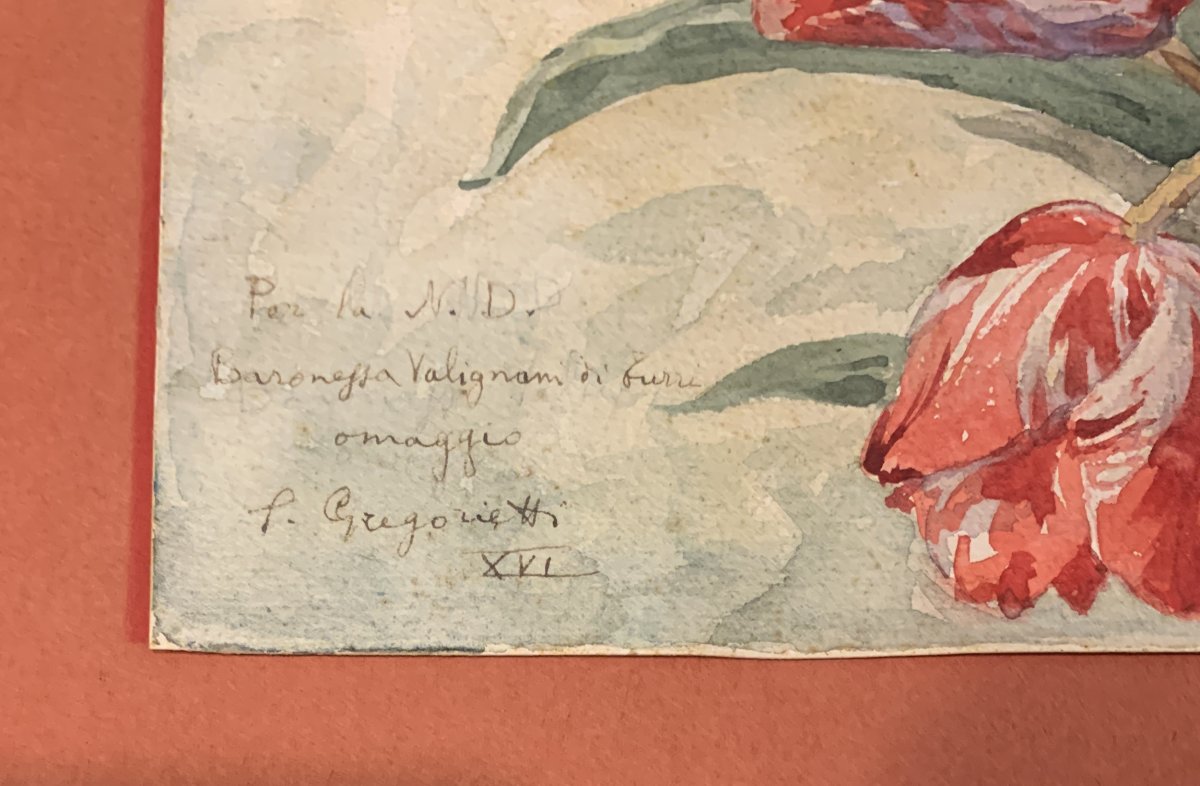 Per la N. D.
Baronessa Valignani di Turri
omaggio
S. Gregorietti
XVI